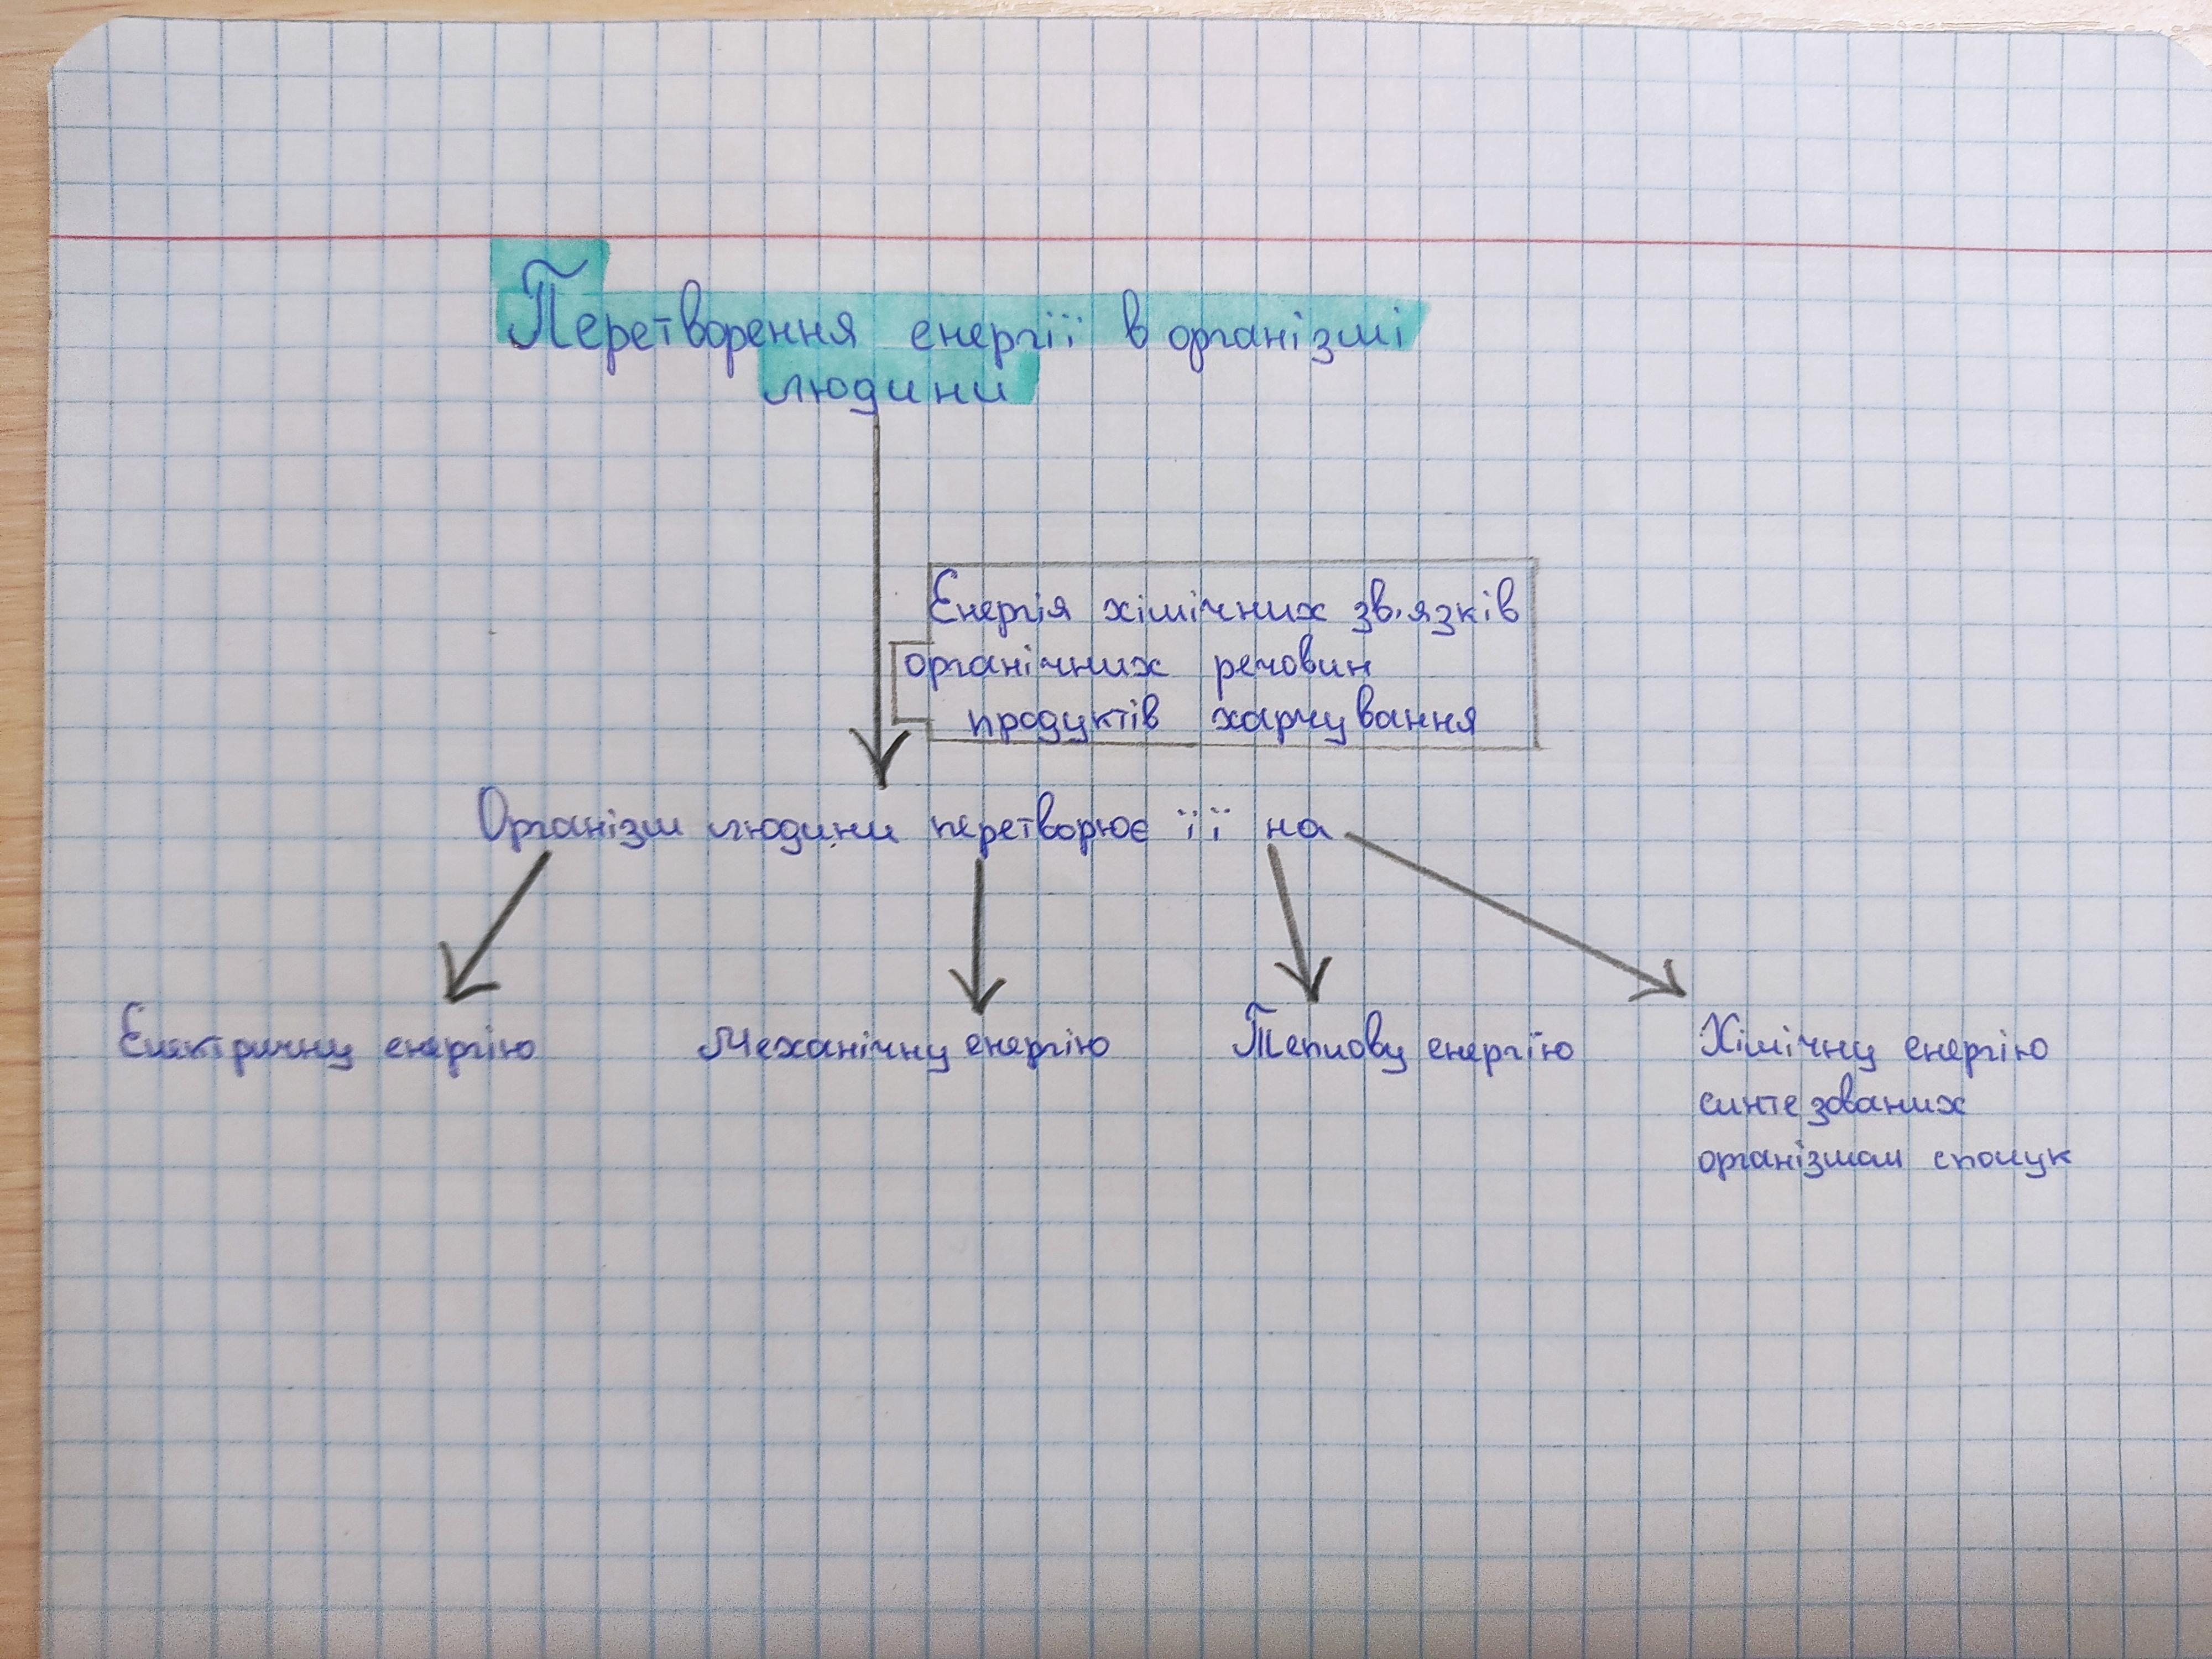 Перетворення енергії в організмі
людини
Енергія хімічних зв'язків
органічних речовин
продуктів харчування
Організм людини перетворює її на
Електричну енергію
Механічну енергію
Теплову енергію
Хімічну енергію
синтезованих
організмом сполук